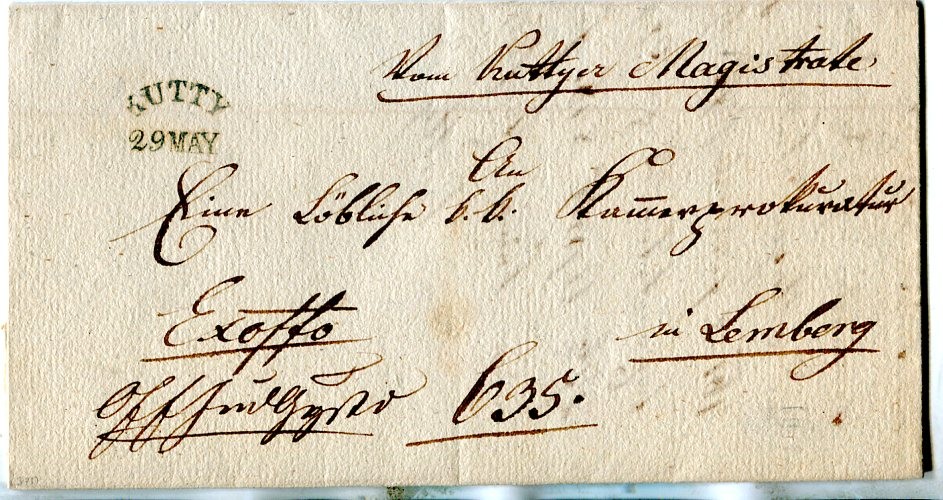 Vom Kuttyer Magistrate
KUTTY
29 MAY
An
Eine Löbliche k. k. Kammerprokuratur
Exoffo
in Lemberg
635.